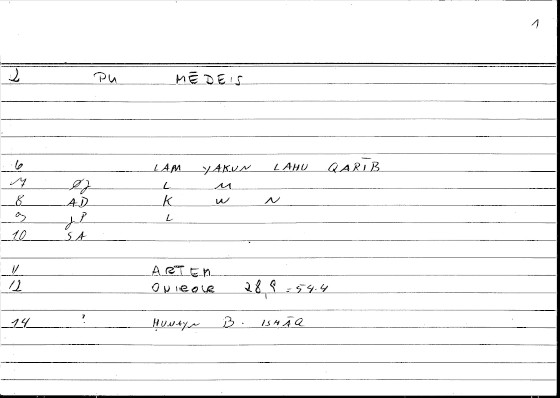 1
2 PU MĒDEIS
6 LAM YAKUN LAHU QARĪB
7 L M
8 AD K W N
9 JP L
10 SA
11 ARTEM
12 28,9 = 54.4
14 ? ḤUNAYN B. ISHĀQ